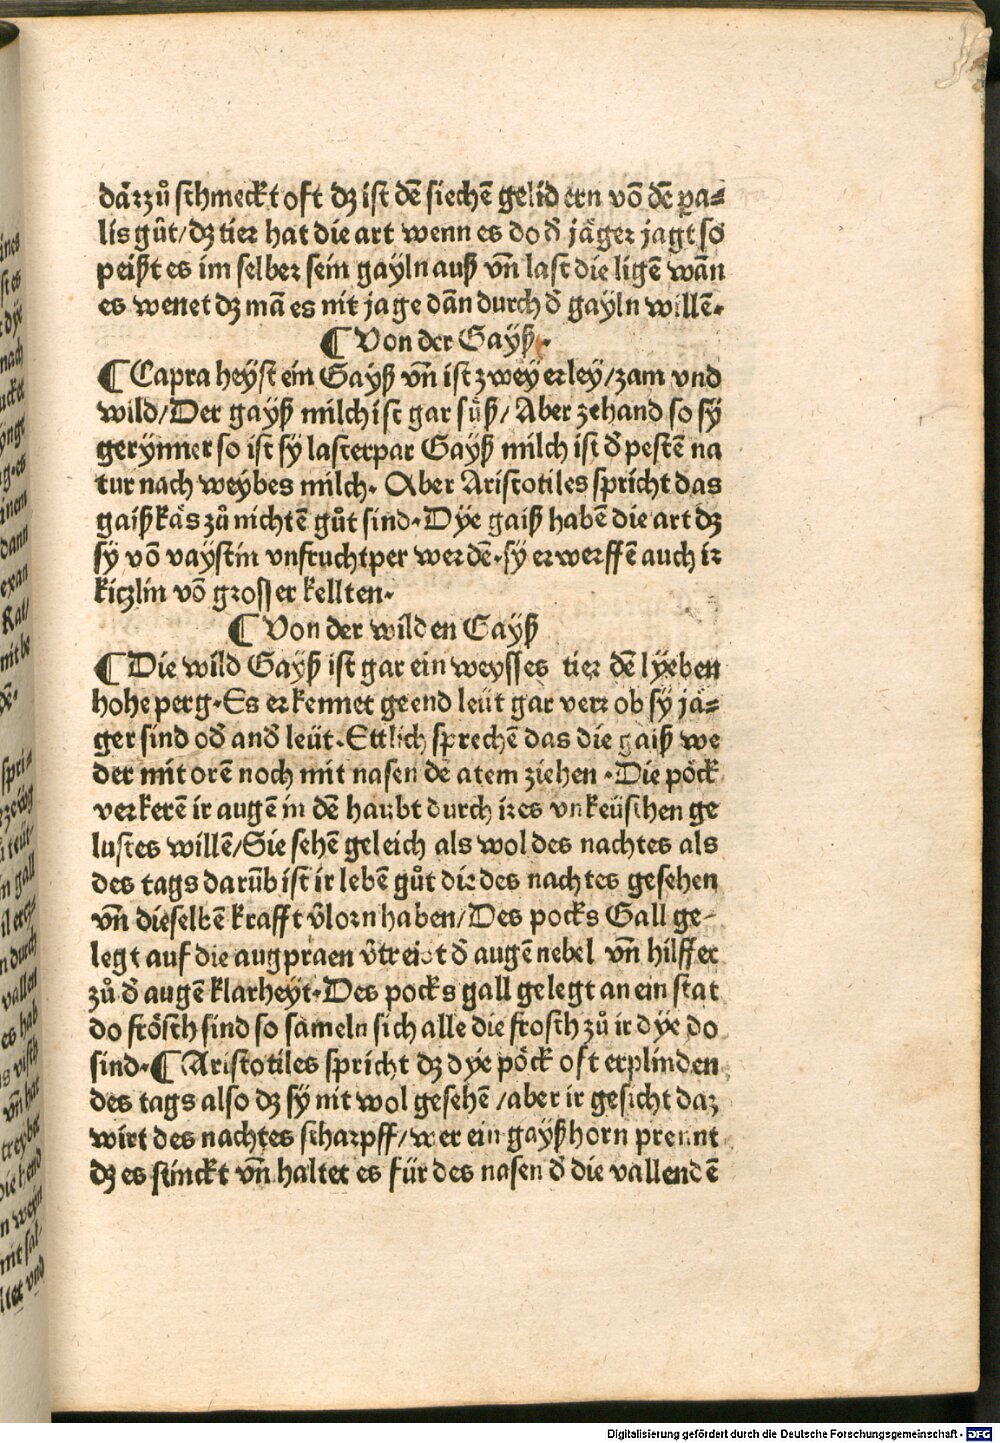 darzů schmeckt oft dz ist dē siechē gelidern vō dē pa⸗
lis gůt/dz tier hat die art wenn es do ð jäger jagt so
peißt es im selber sein gayln auß vn̄ last die ligē wān
es wenet dz mā es nit jage dān durch ð gayln willē.
¶ Von der Gayß.
¶ Capra heÿst ein Gaÿß vn̄ ist zweÿerley/zam vnd
wild/Der gayß milch ist gar sůß/Aber zehand so sÿ
gerÿnner so ist sÿ lasterpar Gaÿß milch ist ð pestē na
tur nach weybes milch. Aber Aristotiles spricht das
gaißkäs zů nichtē gůt sind. Dÿe gaiß habē die art dz
sÿ vō vaÿstin vnfruchtper werdē. sÿ erwerffē auch ir
kiczlin vō grosser kellten.
¶ Von der wilden Gaÿß
¶ Die wild Gaÿß ist gar ein weysses tier dē lÿeben
hohe perg. Es erkennet geend leüt gar verr ob sÿ jä⸗
ger sind oð anð leüt. Ettlich sprechē das die gaiß we
der mit orē noch mit nasen dē atem ziehen. Die pöck
verkerē ir augē in dē haubt durch ires vnkeüschen ge
lustes willē/Sie sehē geleich als wol des nachtes als
des tags darūb ist ir lebē gůt die des nachtes gesehen
vn̄ dieselbē krafft v̄lorn haben/Des pocks Gall ge⸗
legt auf die augpraen v̄treibt ð augē nebel vn̄ hilffet
zů ð augē klarheyt. Des pocks gall gelegt an ein stat
do frösch sind so sameln sich alle die frosch zů ir dÿe do
sind. ¶ Aristotiles spricht dz dÿe pöck oft erplinden
des tags also dz sÿ nit wol gesehē/aber ir gesicht daz
wirt des nachtes scharpff/wer ein gayßhorn prennt
dz es stinckt vn̄ haltet es für des nasen ð die vallendē
Digitalisierung gefördert durch die Deutsche Forschungsgemeinschaft - DFG